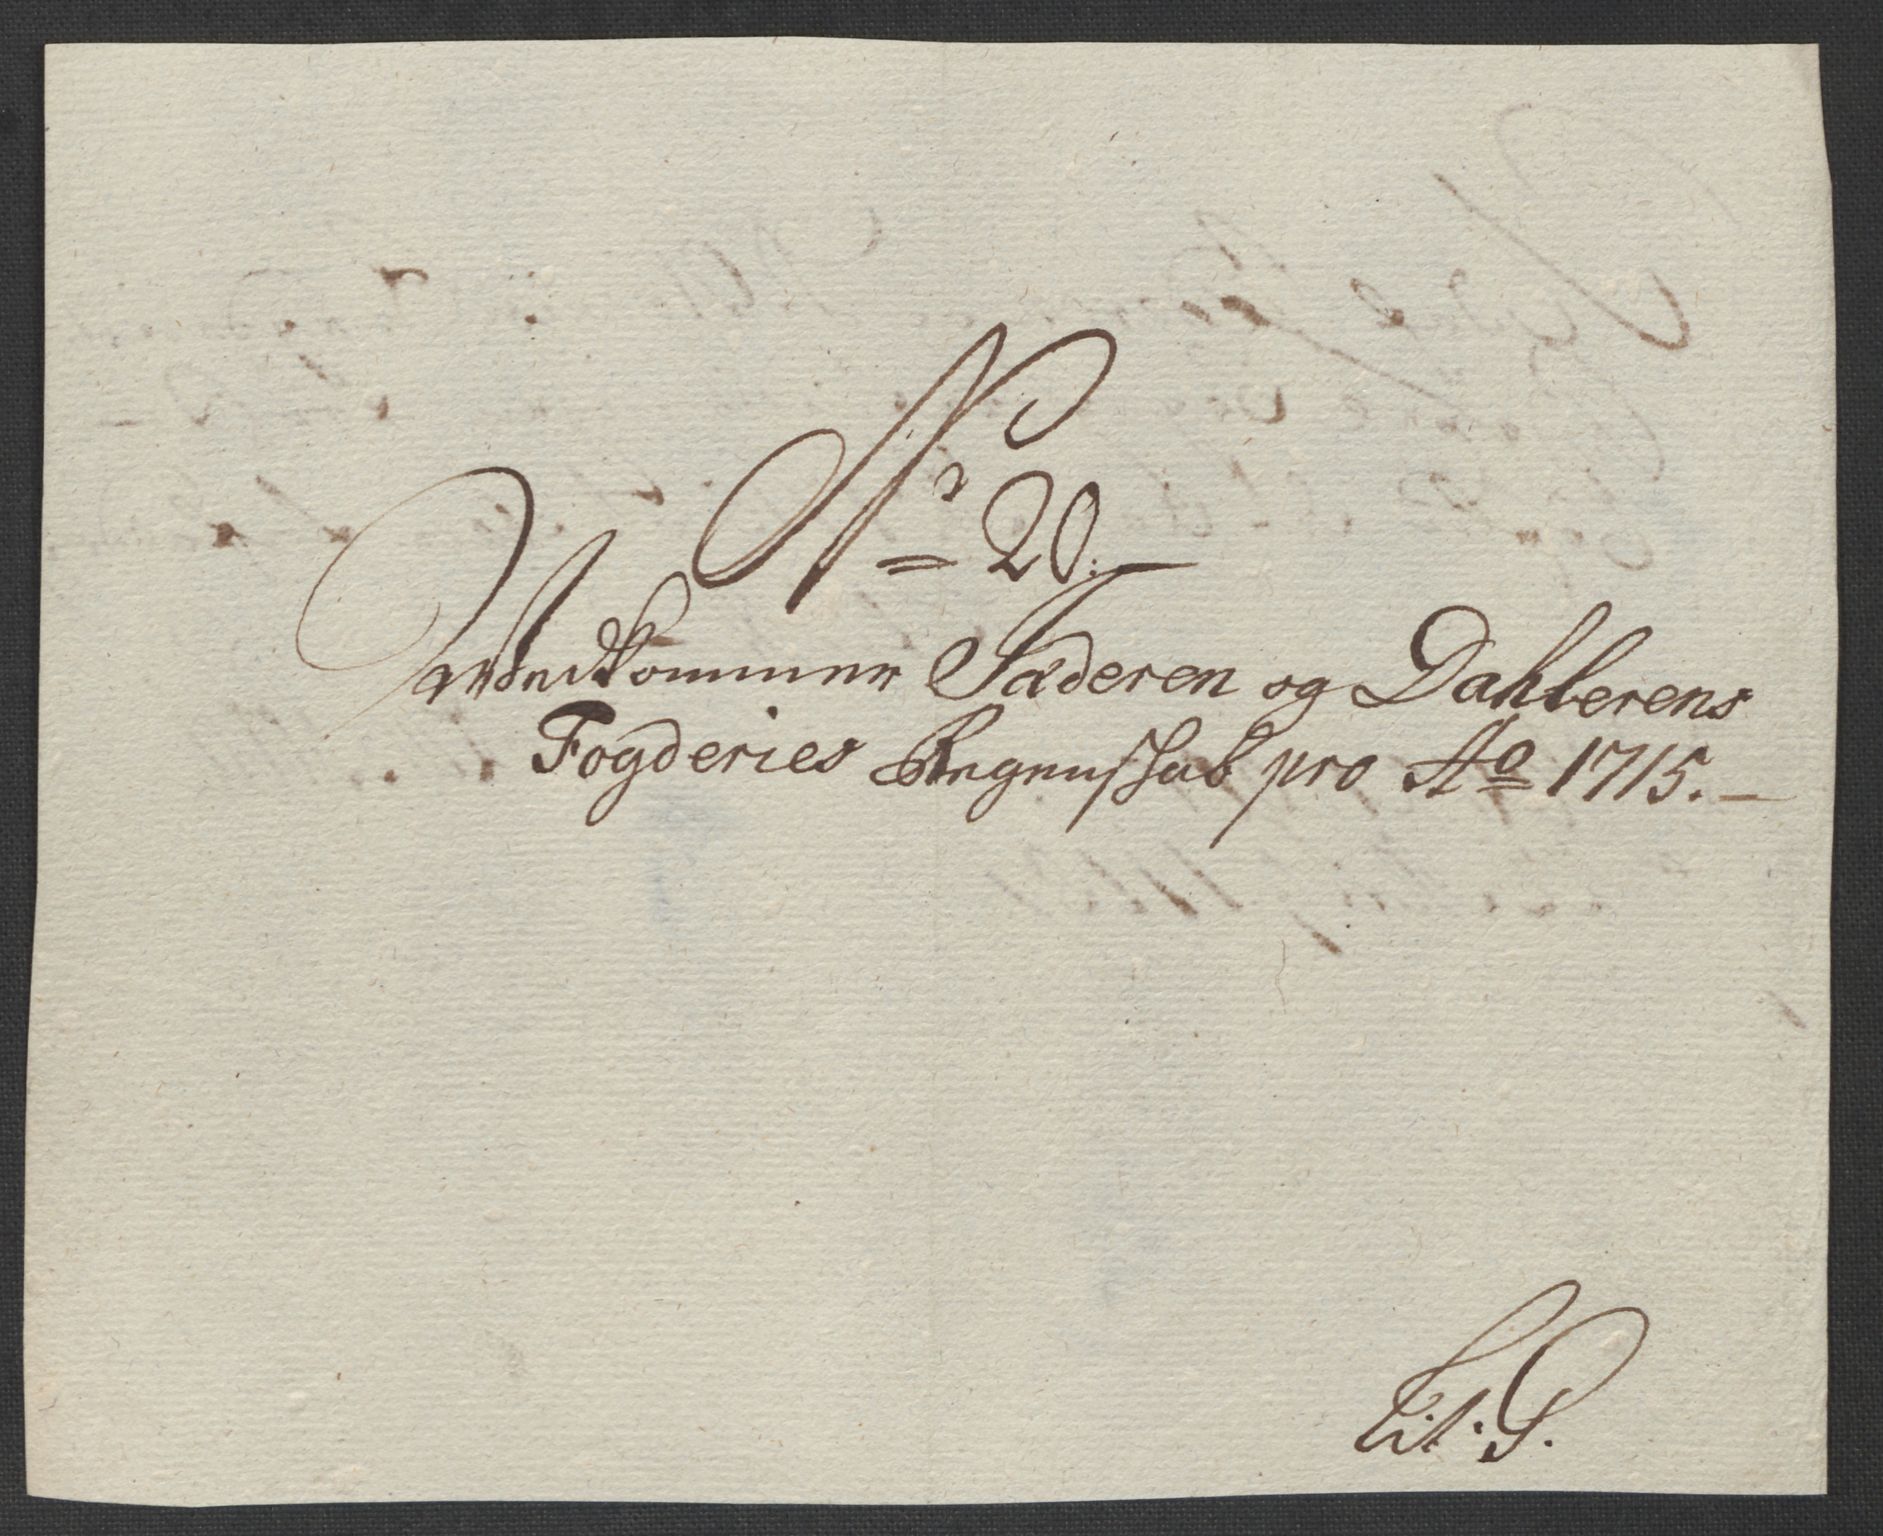 No 20.
Vedkommer Jæderen og Dahlerens
Fogderies Regnskab pro Ao 1715.
Lit: S.